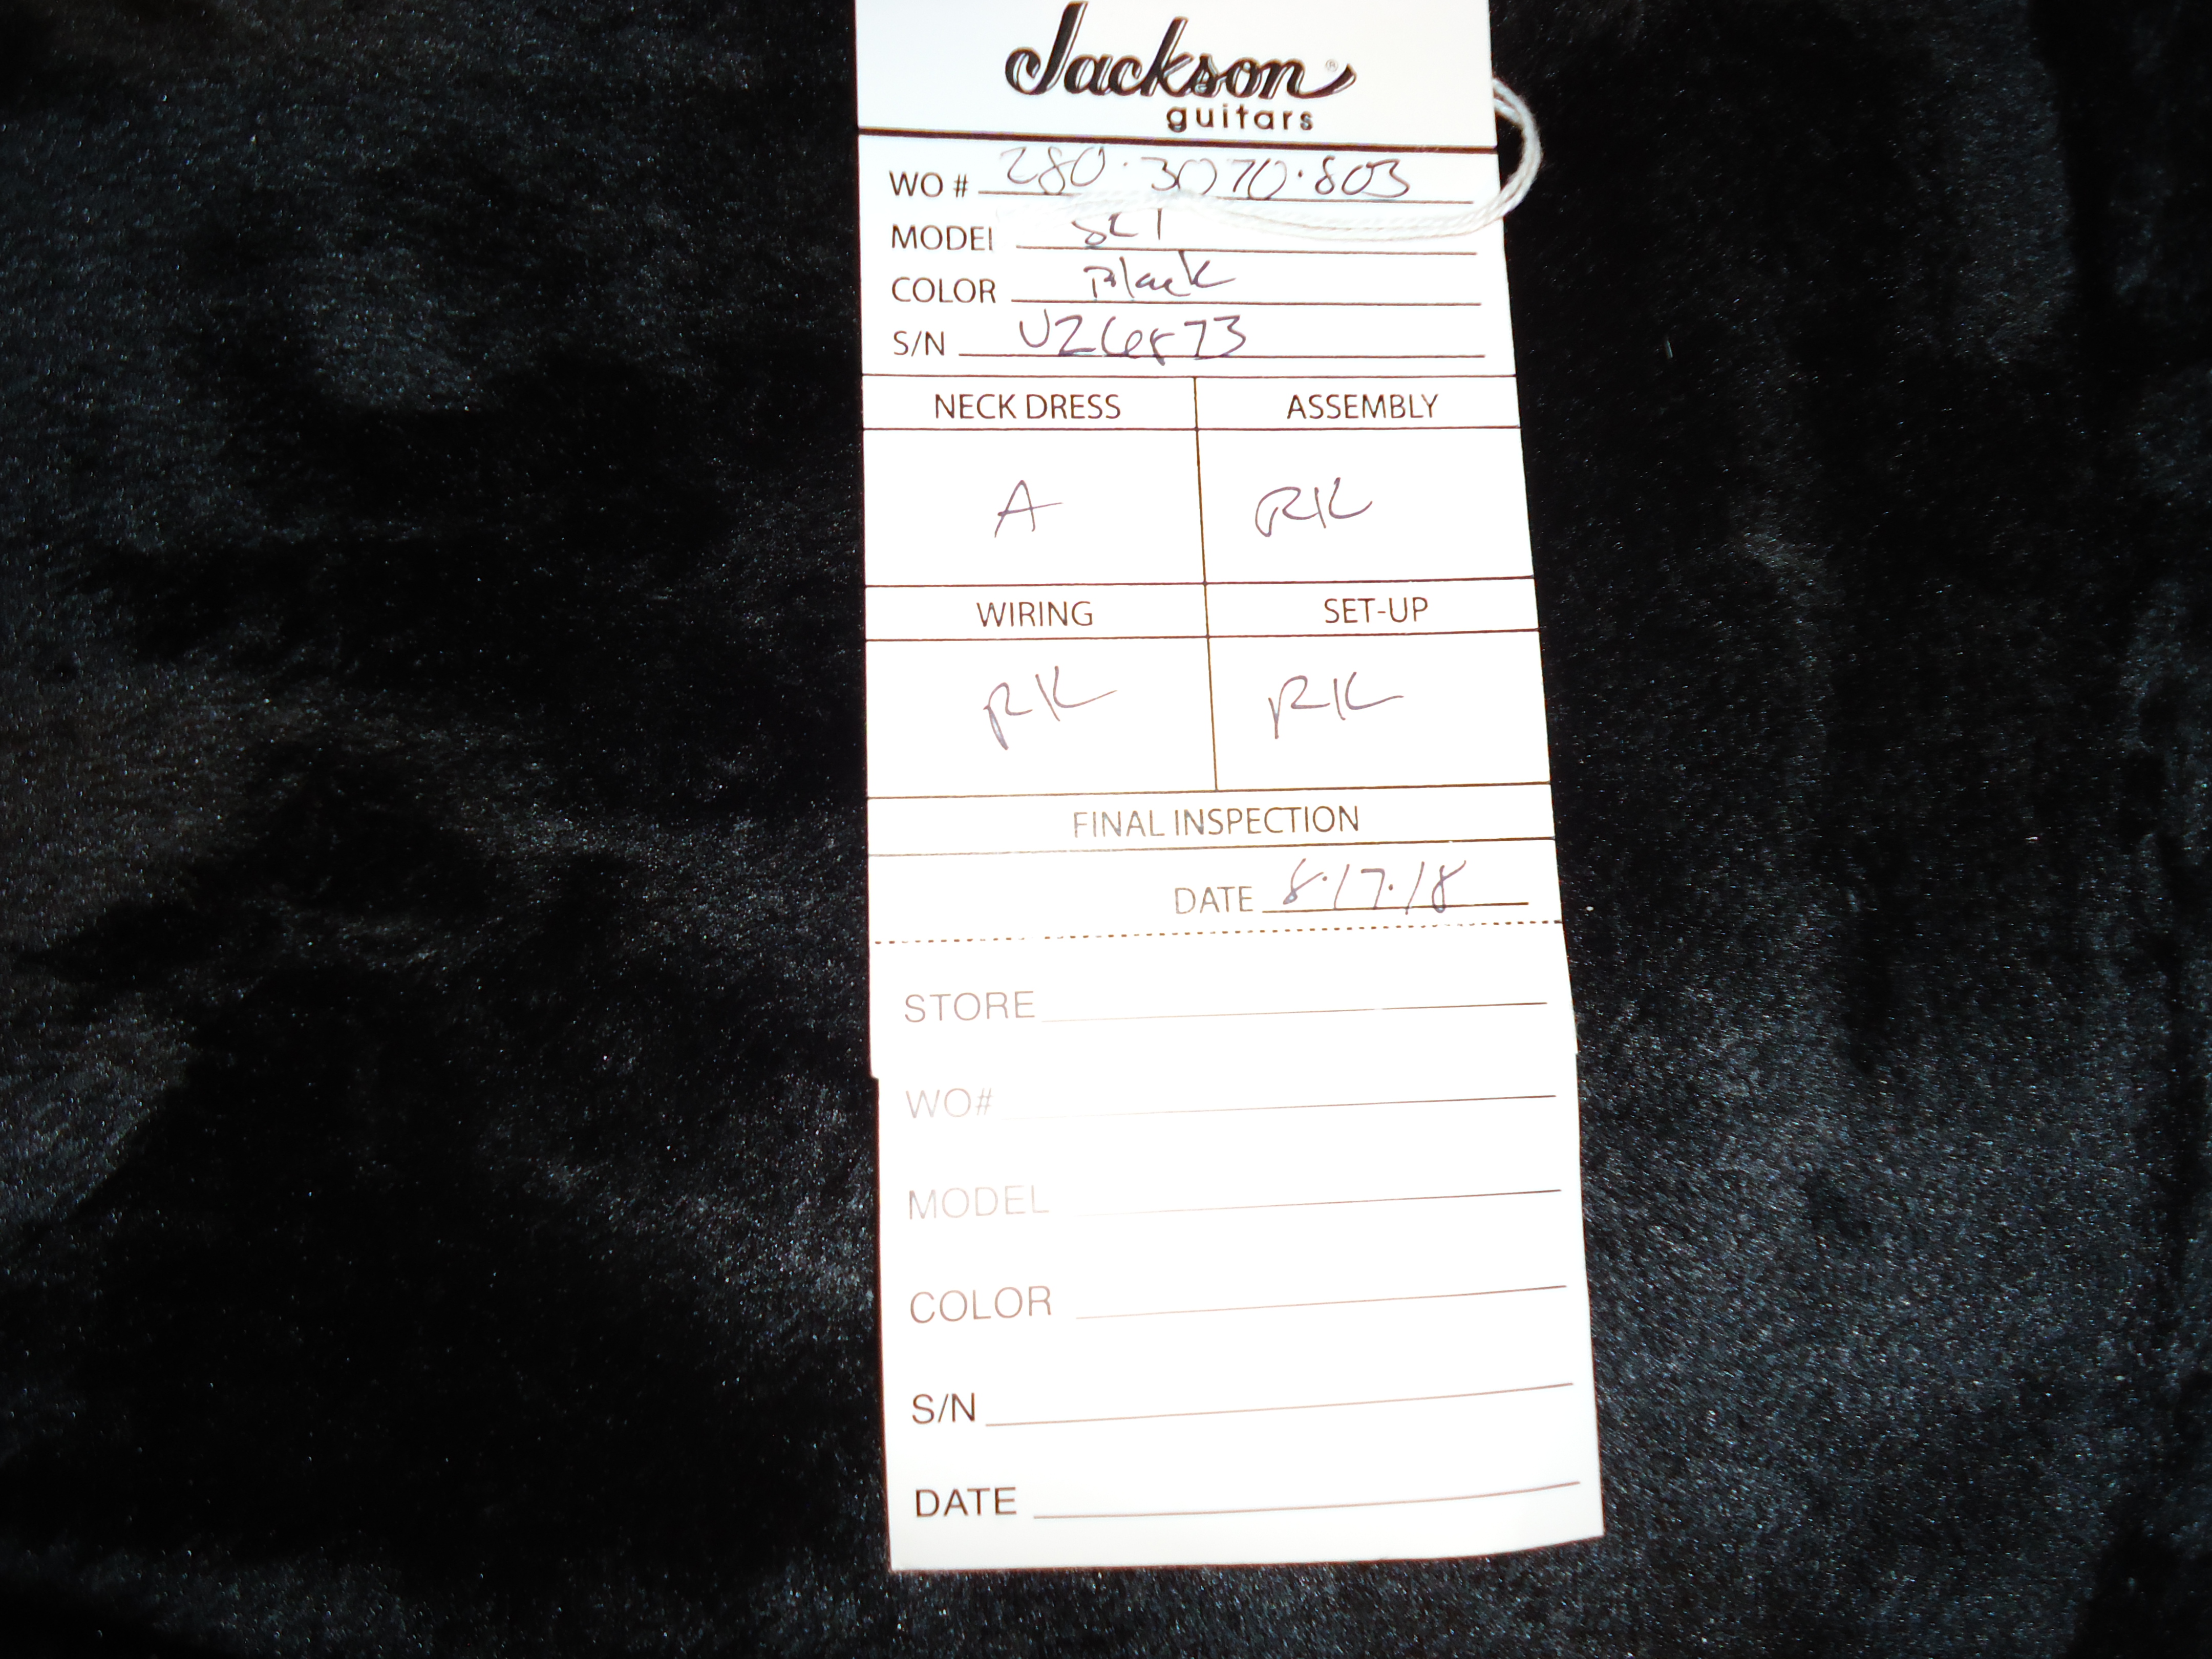 Jackson®
guitars
WO # 280·3070·803
MODEL SL1
COLOR Black
S/N
NECK DRESS ASSEMBLY
A RK
WIRING SET-UP
RK RK
FINAL INSPECTION
DATE 8·17·18
STORE
WO#
MODEL
COLOR
S/N
DATE